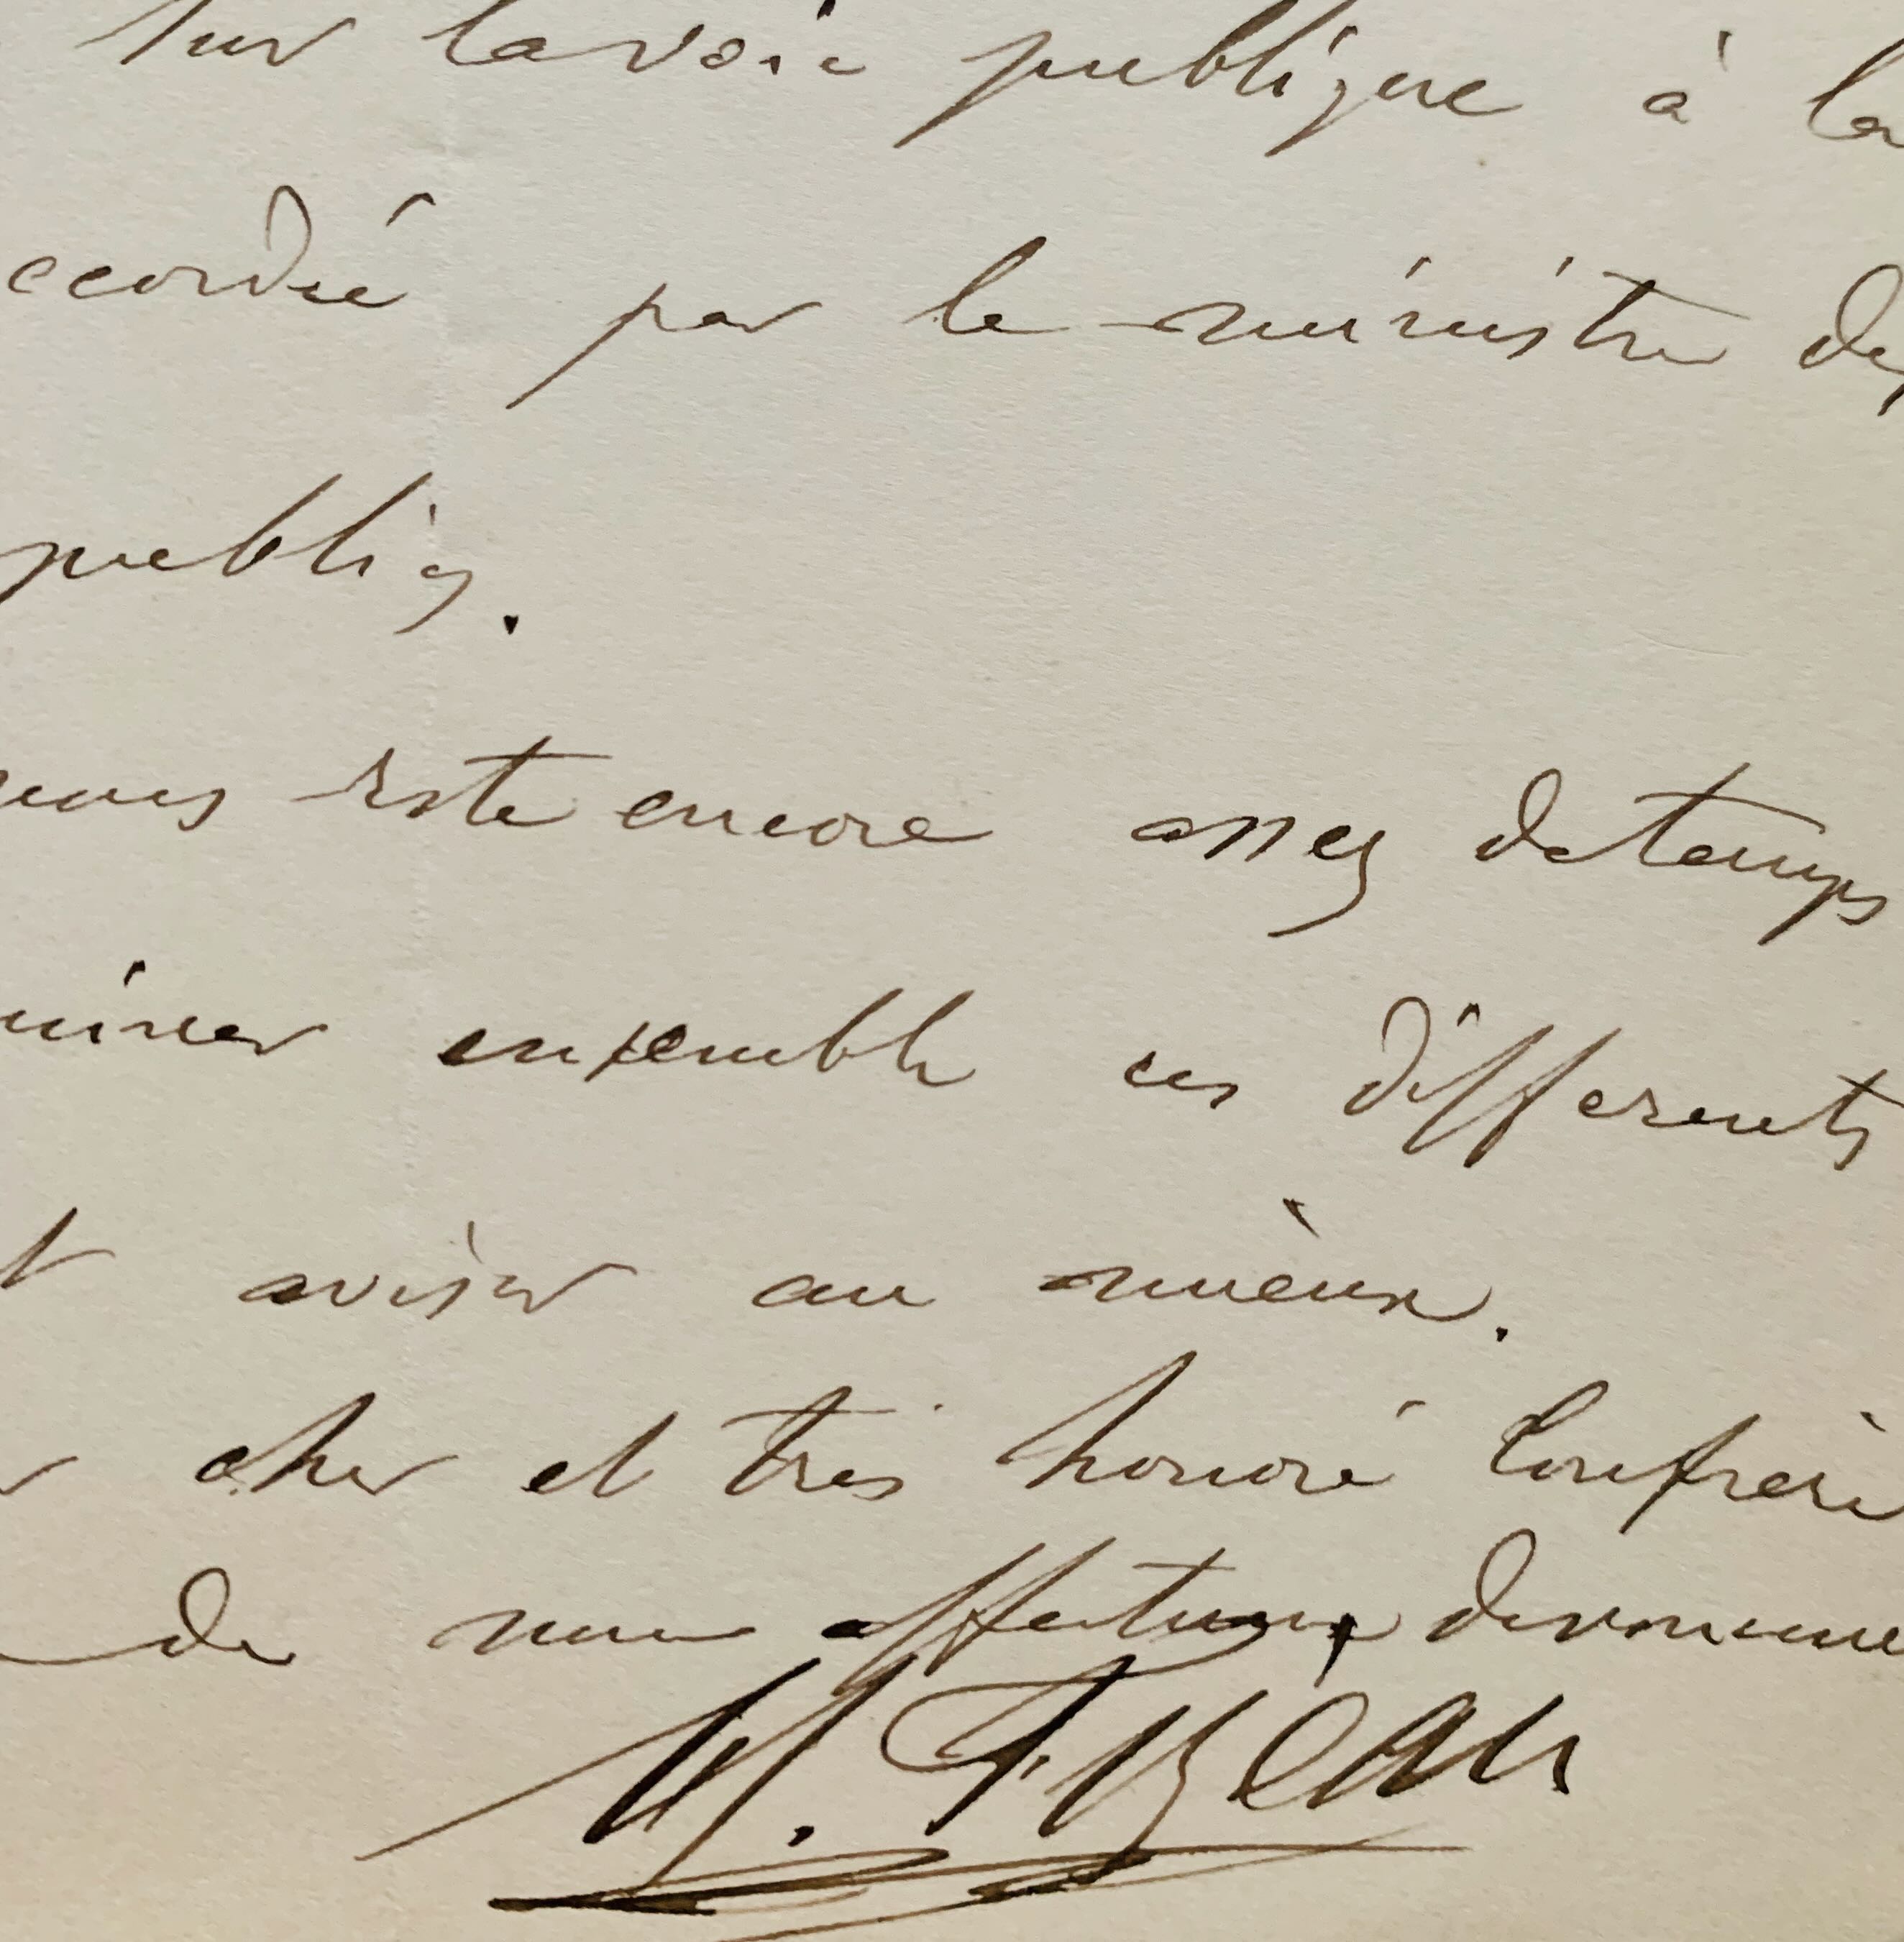 sur la voie publique à la
ccordée par le ministre des
publics.
nous reste encore assez de temps
miner ensemble ces différents
t aviser au mieux.
r cher et très honoré Confrère
de mon affectueux dévoueme
H. Fizeau